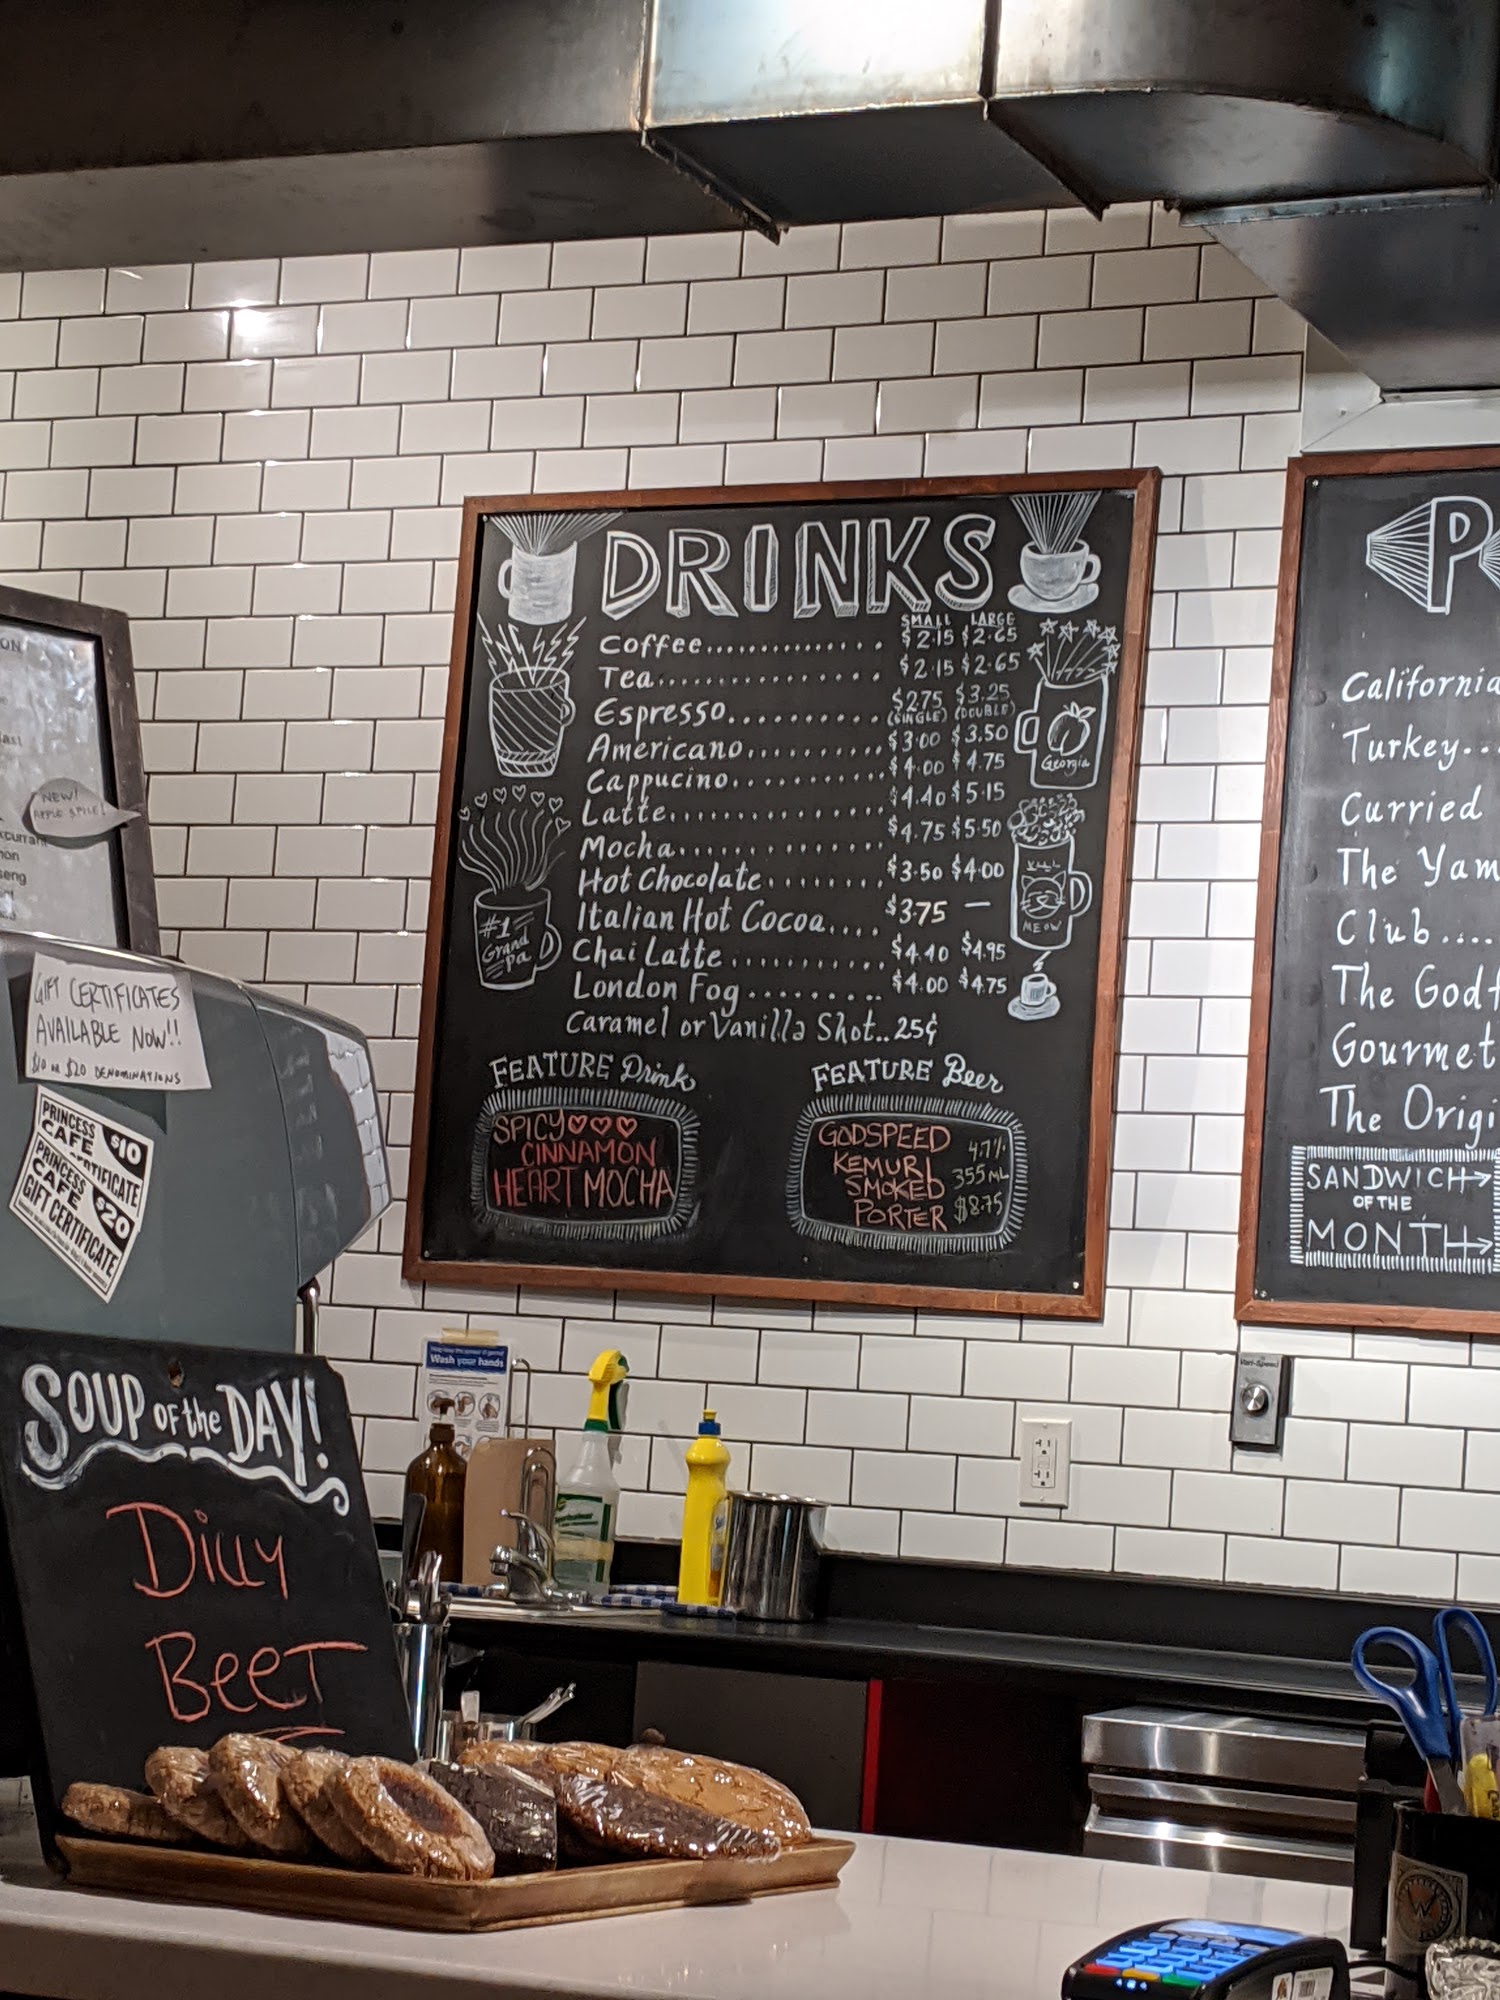 DRINKS
SMALL LARGE
Coffee............... $2.15 $2.65
Tea................. $2.15 $2.65
Espresso........... $2.75 $3.25
(SINGLE) (DOUBLE)
Americano........... $3.00 $3.50
Cappucino............ $4.00 $4.75
Latte................. $4.40 $5.15
Mocha............... $4.75 $5.50
Hot Chocolate........ $3.50 $4.00
Italian Hot Cocoa.... $3.75 —
Chai Latte............ $4.40 $4.95
London Fog......... $4.00 $4.75
Caramel or Vanilla Shot.. 25¢
#1
Grand
pa
Georgia
MEOW
FEATURE Drink
SPICY
CINNAMON
HEART MOCHA
FEATURE Beer
GODSPEED
KEMURI
SMOKED
PORTER
4.7%
355 mL
$8.75
P
California
Turkey...
Curried
The Yam
Club....
The Godf
Gourmet
The Origi
SANDWICH
OF THE
MONTH
NEW!
APPLE SPICE!
GIFT CERTIFICATES
AVAILABLE NOW!!
$10 OR $20 DENOMINATIONS
PRINCESS
CAFE
$10
PRINCESS
CAFE
$20
GIFT CERTIFICATE
SOUP OF the DAY!
DILLY
BEET
Wash your hands
Vari-Speed
W